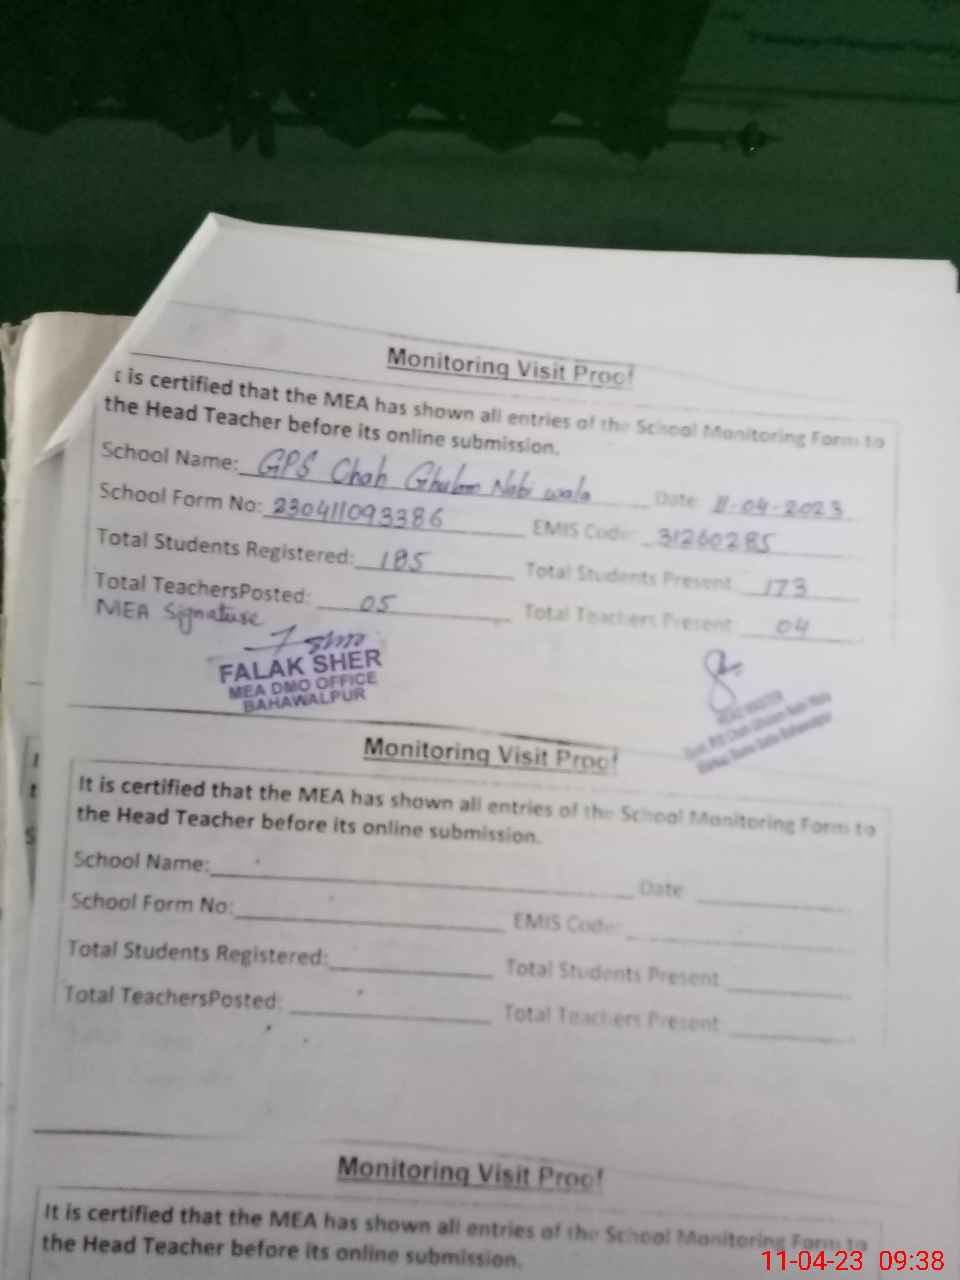 Monitoring Visit Proof
t is certified that the MEA has shown all entries of the School Monitoring Form to
the Head Teacher before its online submission.
School Name: GPS Chah Ghulam Nabi wala Date 11-04-2023
School Form No: 230411093386 EMIS Code: 31260285
Total Students Registered: 185 Total Students Present 173
Total TeachersPosted: 05 Total Teachers Present 04
MEA Signature
FALAK SHER
MEA DMO OFFICE
BAHAWALPUR
HEAD MASTER
Monitoring Visit Proof
It is certified that the MEA has shown all entries of the School Monitoring Form to
the Head Teacher before its online submission.
School Name: Date
School Form No: EMIS Code:
Total Students Registered: Total Students Present
Total TeachersPosted: Total Teachers Present
Monitoring Visit Proof
It is certified that the MEA has shown all entries of the School Monitoring Form to
the Head Teacher before its online submission.
11-04-23 09:38